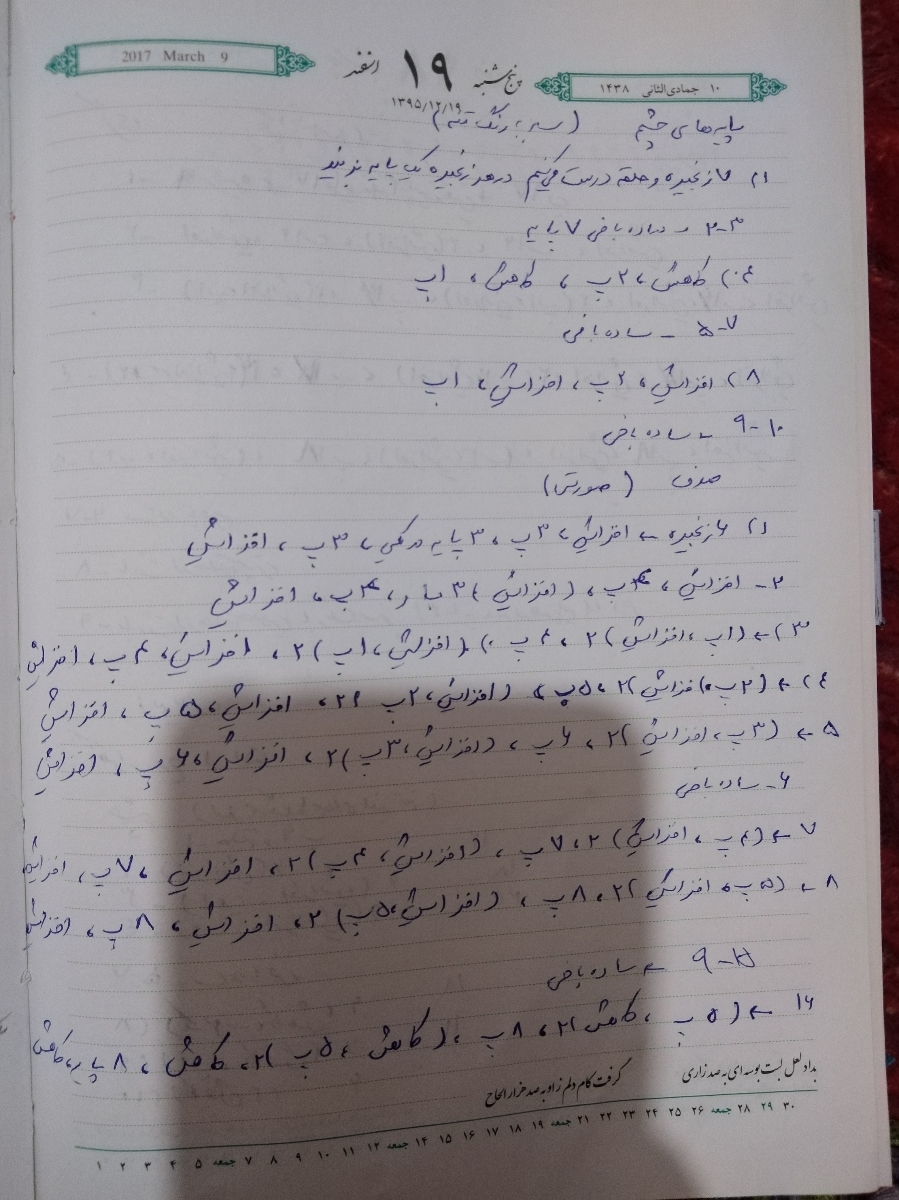 2017 March 9
پنج‌شنبه ۱۹ اسفند
۱۰ جمادی‌الثانی ۱۴۳۸
۱۳۹۵/۱۲/۱۹
پایه‌های چشم (سبز، رنگ تنه)
۱) ۷ زنجیره و حلقه درست می‌کنیم در هر زنجیره یک پایه بزنید
۲-۳ ساده بافی ۷ پایه
۴) کاهش، ۲پ، کاهش، ۱پ
۵-۷ - ساده بافی
۸) افزایش، ۲پ، افزایش، ۱پ
۹-۱۰ ← ساده بافی
صدف (صورتی)
۱) ۶ زنجیره ← افزایش، ۳پ، ۳ پایه در یکی، ۳پ، افزایش
۲- افزایش، ۴پ، (افزایش) ۳ بار، ۴پ، افزایش
۳) ← (۱پ، افزایش) ۲، ۴پ، (افزایش، ۱پ) ۲، افزایش، ۴پ، افزایش
۴) ← (۲پ، افزایش) ۲، ۵پ، (افزایش، ۲پ) ۲، افزایش، ۵پ، افزایش
۵ ← (۳پ، افزایش) ۲، ۶پ، (افزایش، ۳پ) ۲، افزایش، ۶پ، افزایش
۶- ساده بافی
۷ ← (۴پ، افزایش) ۲، ۷پ، (افزایش، ۴پ) ۲، افزایش، ۷پ، افزایش
۸- (۵پ، افزایش) ۲، ۸پ، (افزایش، ۵پ) ۲، افزایش، ۸پ، افزایش
۹-۱۵ ← ساده بافی
۱۶ ← (۵پ، کاهش) ۲، ۸پ، (کاهش، ۵پ) ۲، کاهش، ۸ پایه، کاهش
بداد لعل لبت بوسه‌ای به صد زاری گرفت کام دلم زاو به صد هزار الحاح
۱ ۲ ۳ ۴ ۵ جمعه ۷ ۸ ۹ ۱۰ ۱۱ ۱۲ جمعه ۱۴ ۱۵ ۱۶ ۱۷ ۱۸ ۱۹ جمعه ۲۱ ۲۲ ۲۳ ۲۴ ۲۵ ۲۶ جمعه ۲۸ ۲۹ ۳۰